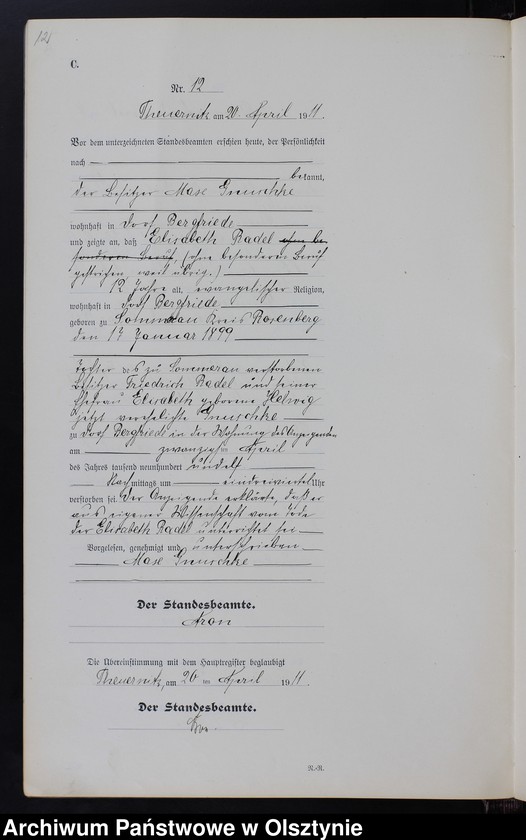 12
C.
Nr. 12
Theuernitz am 20. April 1911.
Vor dem unterzeichneten Standesbeamten erschien heute, der Persönlichkeit
nach
bekannt,
der Besitzer Gruschke
wohnhaft in Dorf Bergfriede
und zeigte an, daß Elisabeth Radel ohne be-
sonderen Beruf, (ohne besonderen Beruf
gestrichen, weil übrig.)
12 Jahre alt, evangelischer Religion,
wohnhaft in Dorf Bergfriede
geboren zu Sommerau Kreis Rosenberg
den 17 Januar 1899
Tochter des zu Sommerau verstorbenen
Besitzer Friedrich Radel und seiner
Ehefrau Elisabeth geborene Helwig
jetzt verehelichte Gruschke
zu Dorf Bergfriede in der Wohnung des Anzeigenden
am zwanzigsten April
des Jahres tausend neunhundert undelf
Nachmittags um eindreiviertel Uhr
verstorben sei. Der Anzeigende erklärte, daß er
aus eigener Wissenschaft vom Tode
der Elisabeth Radel unterrichtet sei
Vorgelesen, genehmigt und unterschrieben
Gruschke
Der Standesbeamte.
Kron
Die Übereinstimmung mit dem Hauptregister beglaubigt
Theuernitz, am 20 ten April 1911.
Der Standesbeamte.
Kron.
R.-R.
Archiwum Państwowe w Olsztynie